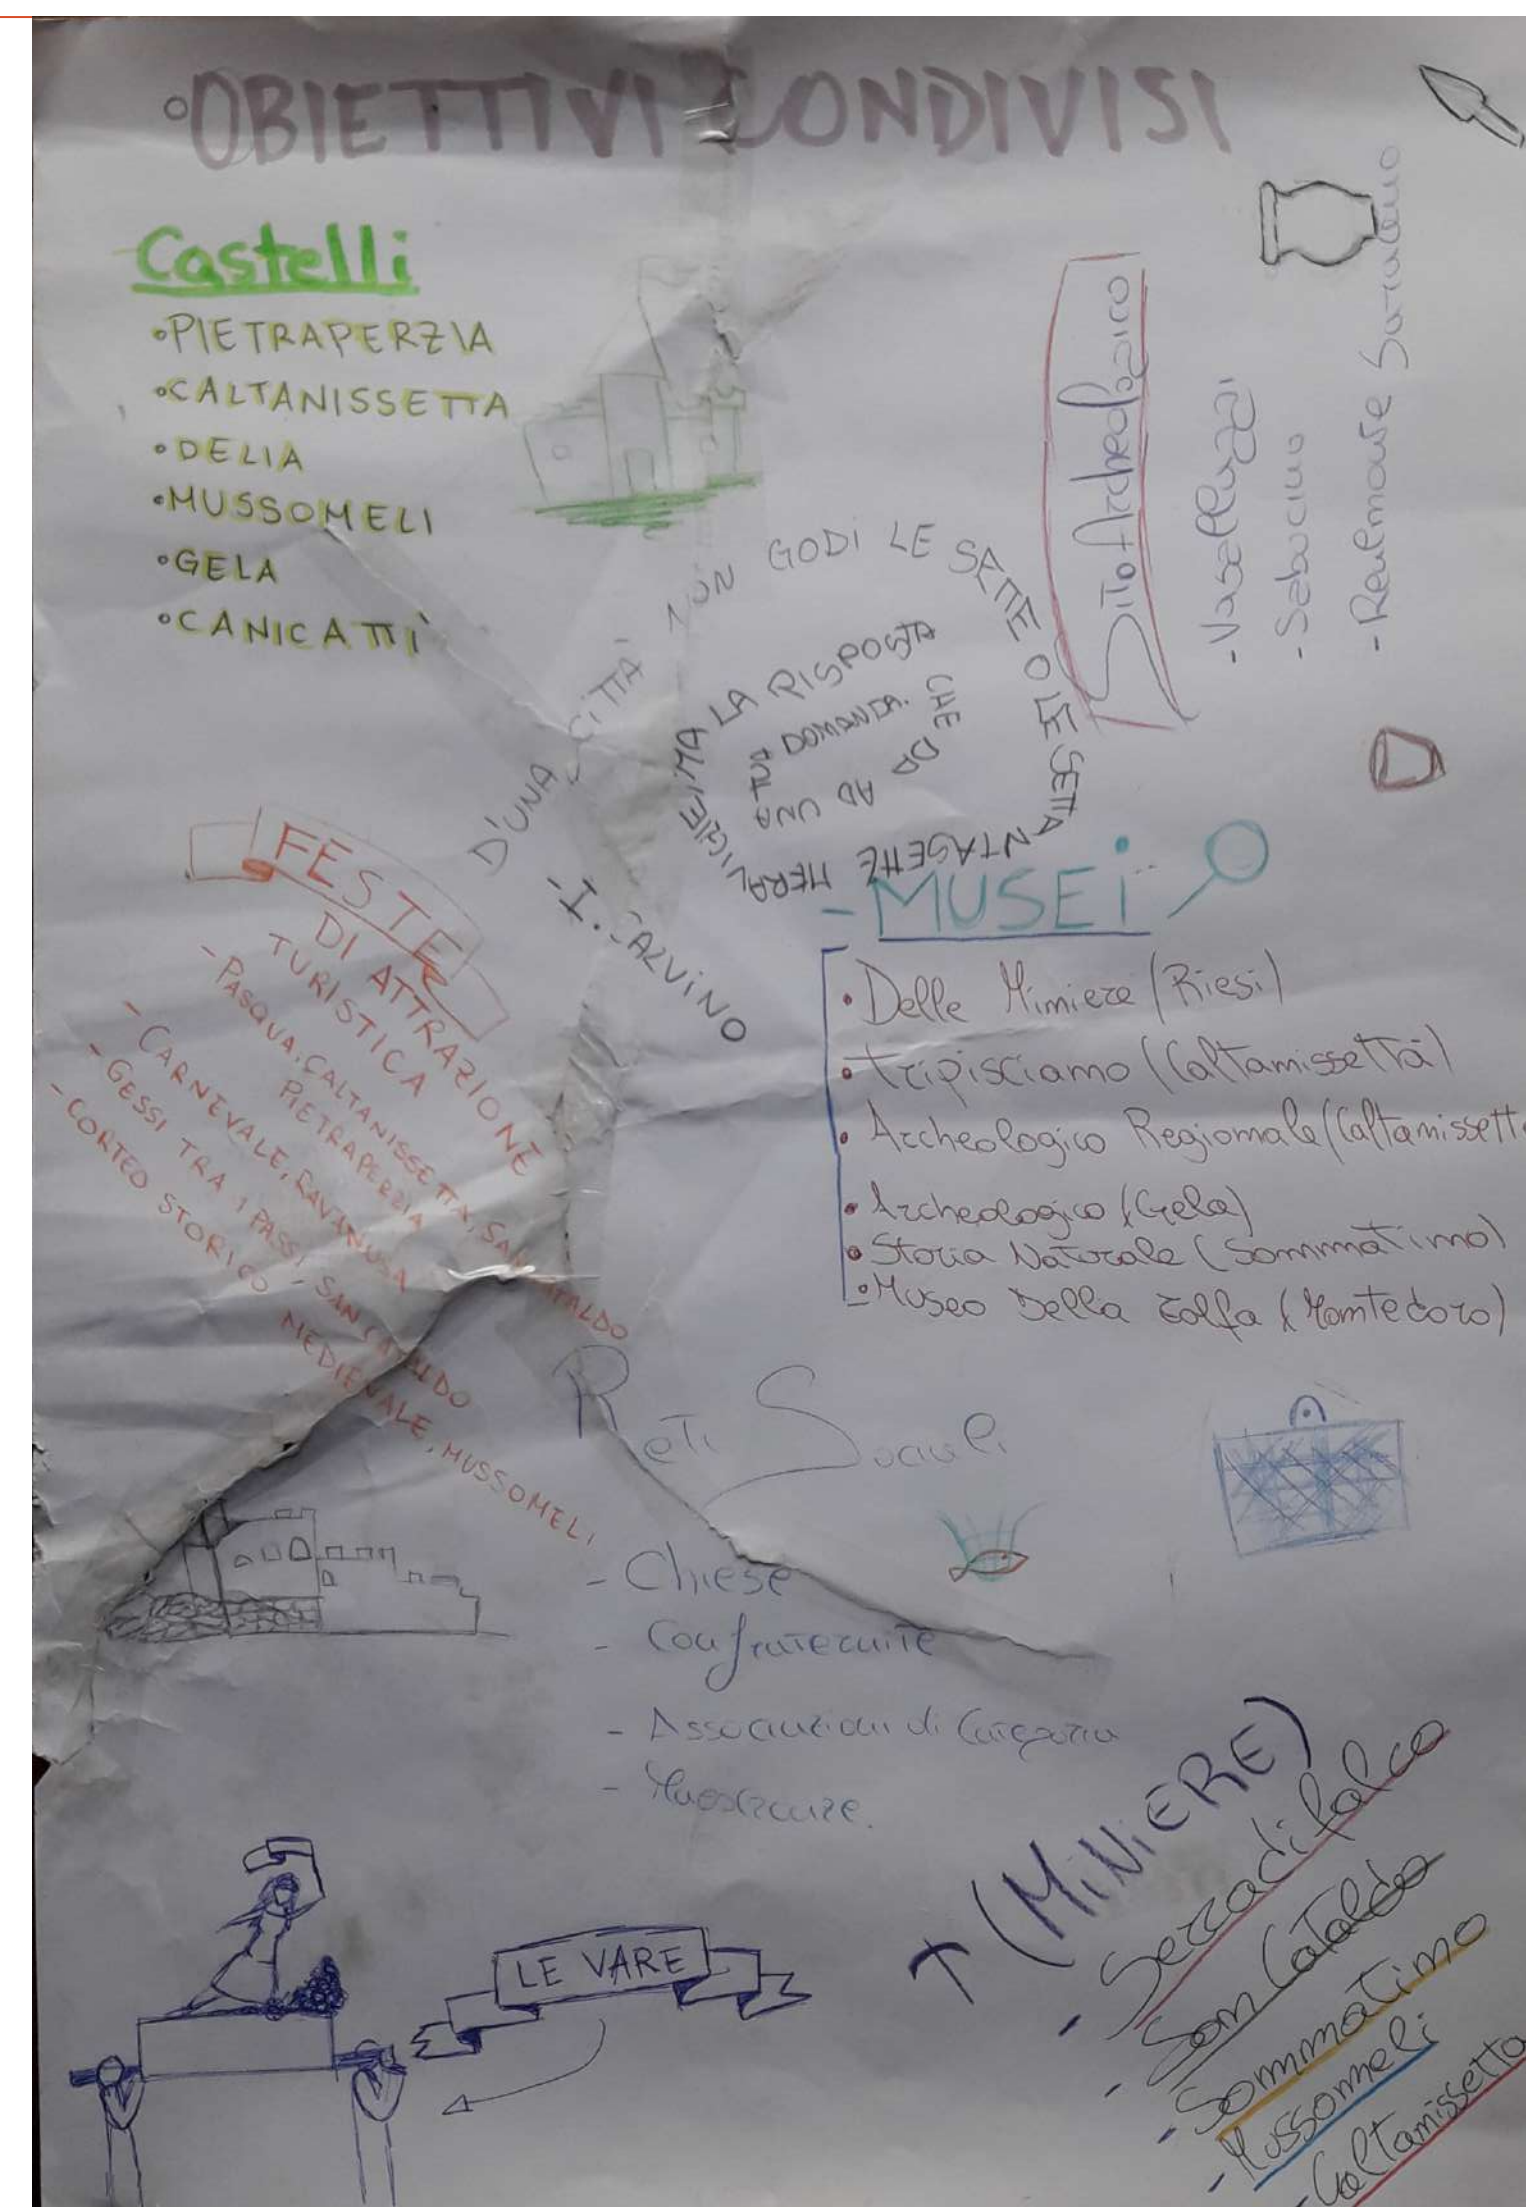 OBIETTIVI CONDIVISI
Castelli
•PIETRAPERZIA
•CALTANISSETTA
•DELIA
•MUSSOMELI
•GELA
•CANICATTÌ
Sito Archeologico
- Vassallaggi
- Sabucina
- Realmonte
D'UNA CITTÀ NON GODI LE SETTE O LE SETTANTASETTE MERAVIGLIE, MA LA RISPOSTA CHE DA AD UNA TUA DOMANDA.
-I. CALVINO
FESTE
DI ATTRAZIONE
TURISTICA
- PASQUA, CALTANISSETTA, SAN CATALDO
PIETRAPERZIA
- CARNEVALE, RAVANUSA
- GESSI TRA I PASSI - SAN CATALDO
- CORTEO STORICO MEDIEVALE, MUSSOMELI
- MUSEI
• Delle Miniere (Riesi)
• Tripisciano (Caltanissetta)
• Archeologico Regionale (Caltanissetta
• Archeologico (Gela)
• Storia Naturale (Sommatino)
• Museo Della Zolfa (Montedoro)
Reti Sociali
- Chiese
- Confraternite
- Associazioni di Categoria
- Maestranze.
(MINIERE)
- Serradifalco
- San Cataldo
- Sommatino
- Mussomeli
- Caltanissetta
LE VARE